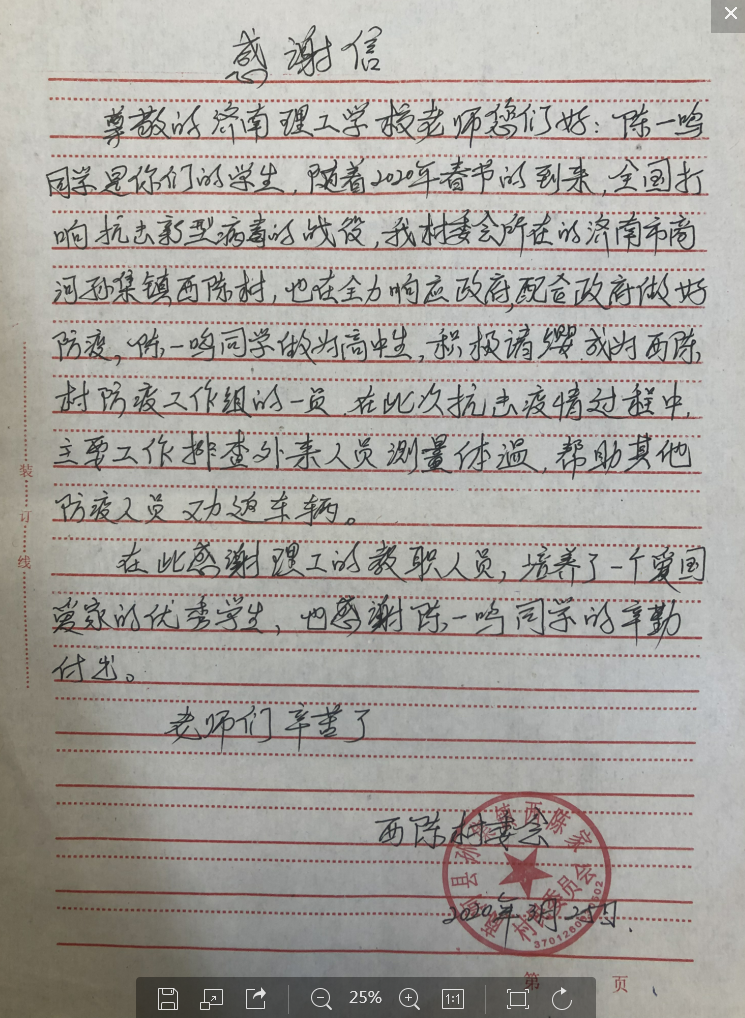 感谢信
尊敬的济南理工学校老师您们好：陈一鸣
同学是你们的学生，随着2020年春节的到来，全国打
响抗击新型病毒的战役，我村委会所在的济南市商
河孙集镇西陈村，也在全力响应政府，配合政府做好
防疫，陈一鸣同学做为高中生，积极请缨成为西陈
村防疫工作组的一员，在此次抗击疫情过程中，
主要工作排查外来人员测量体温，帮助其他
防疫人员劝返车辆。
在此感谢理工的教职人员，培养了一个爱国
爱家的优秀学生，也感谢陈一鸣同学的辛勤
付出。
老师们辛苦了
西陈村委会
2020年3月25日
装订线
第 页
25%
1:1